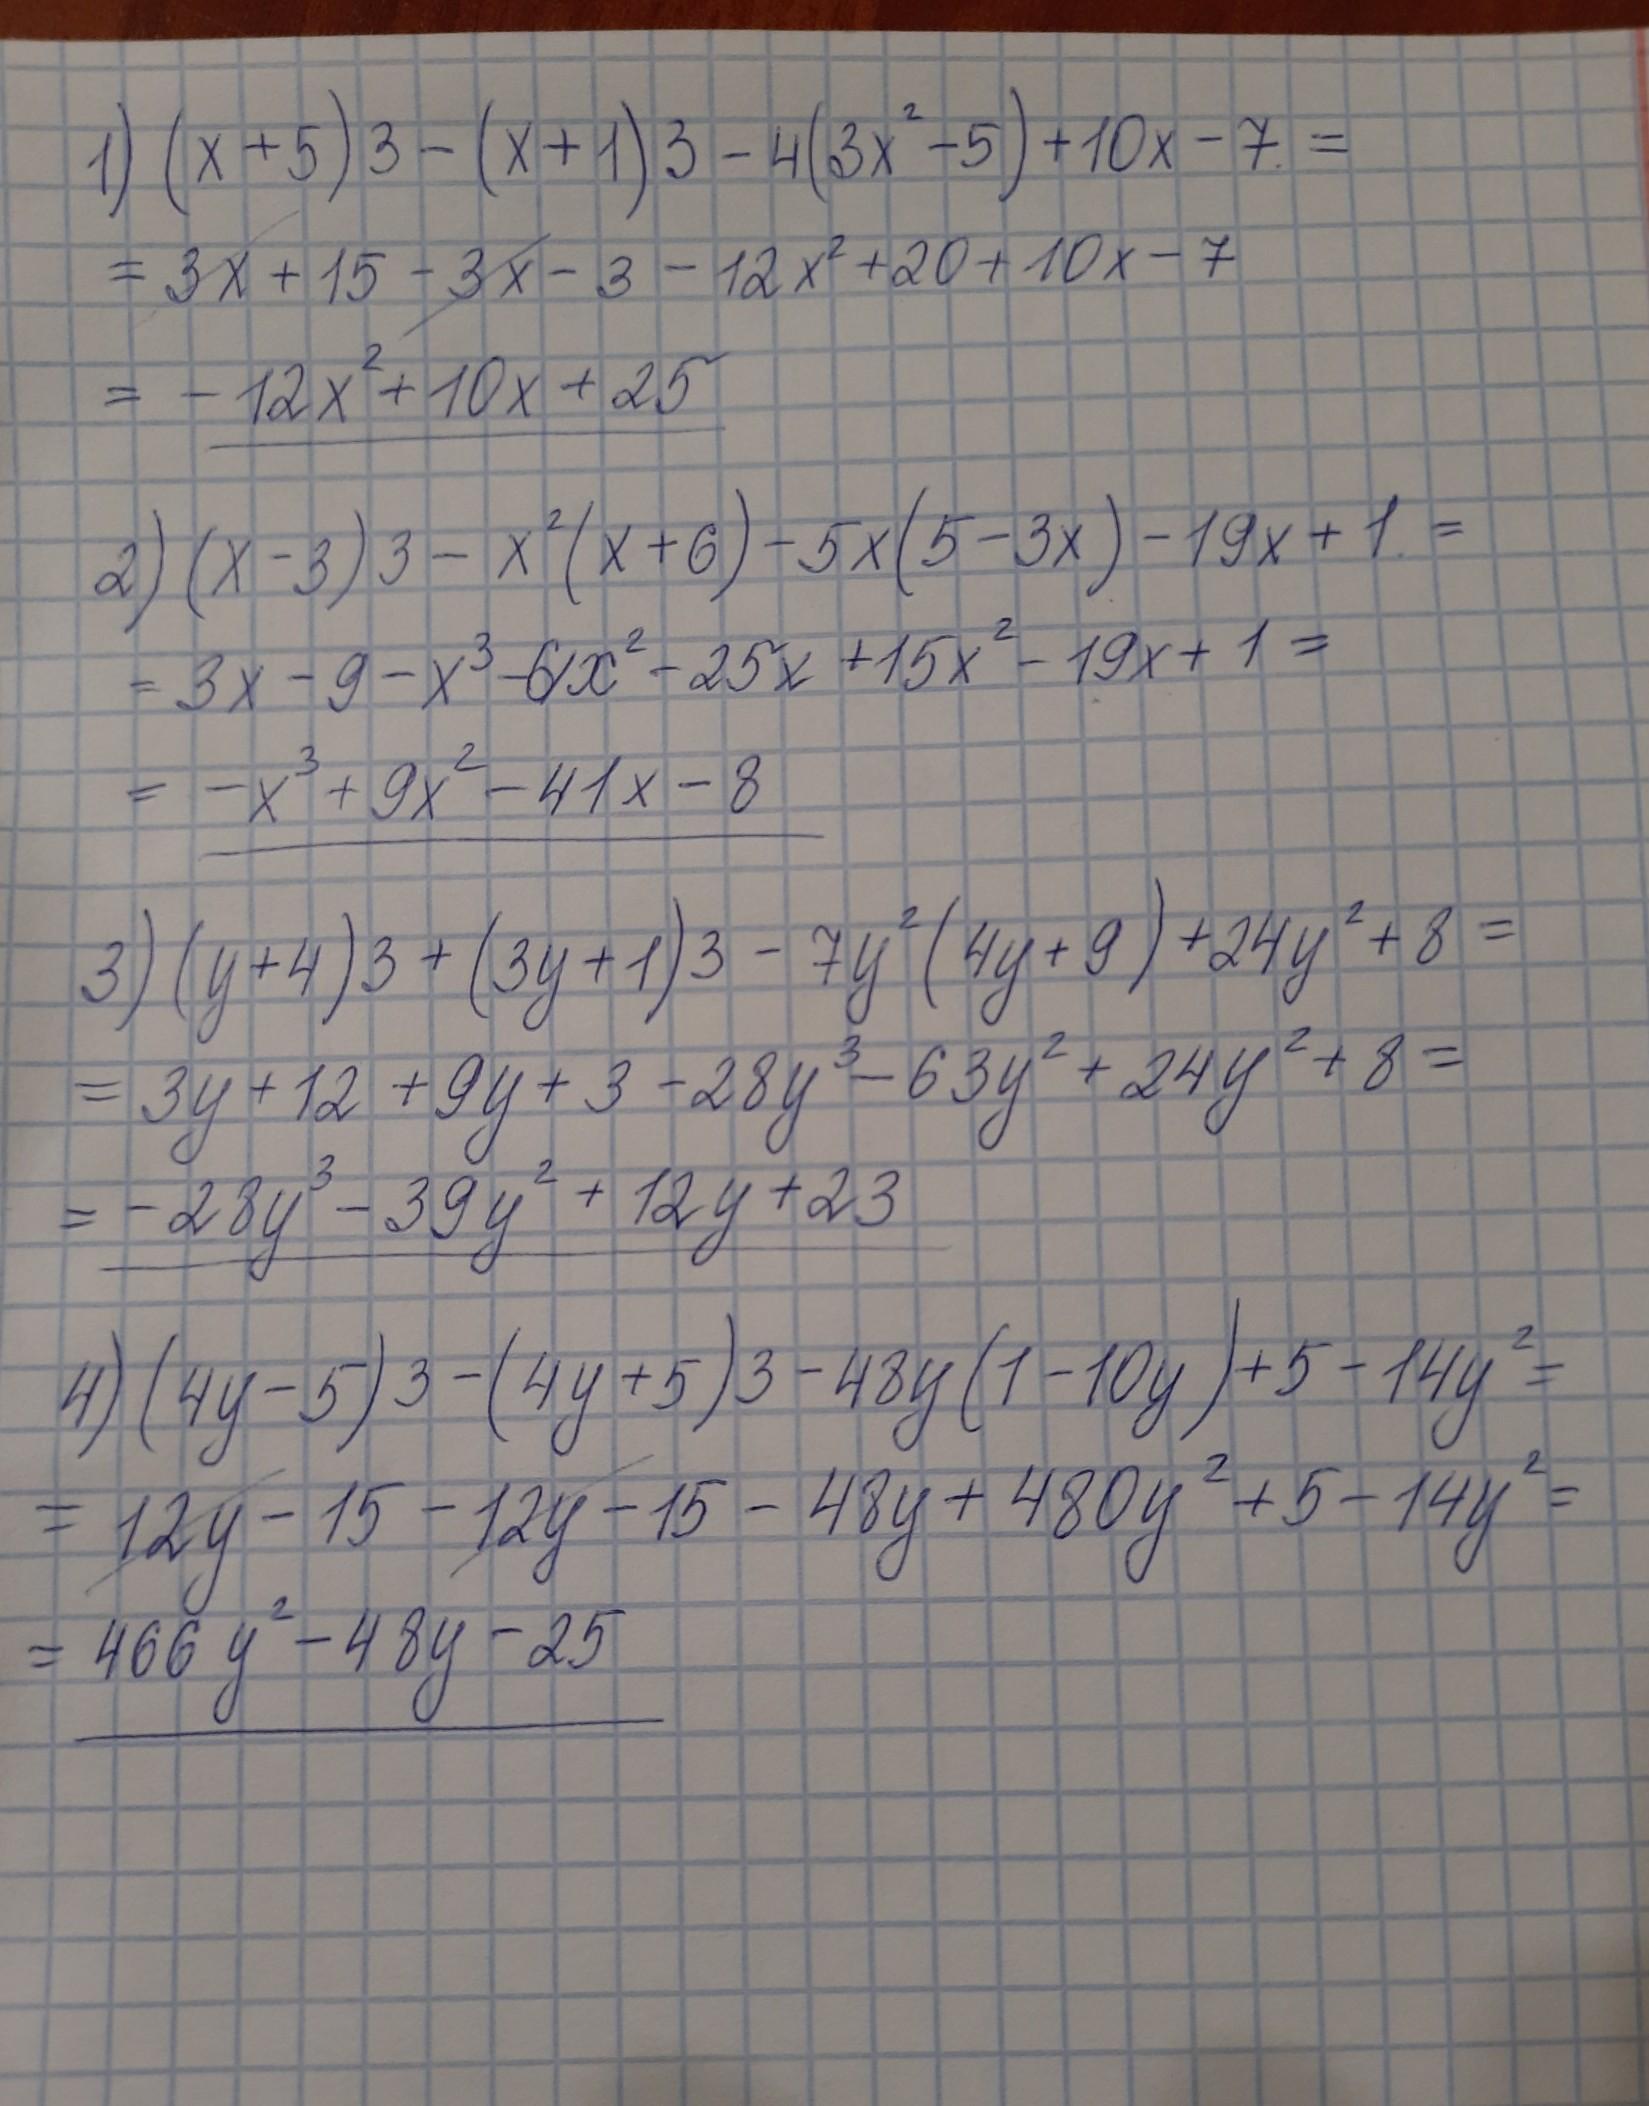 1) (x+5)3-(x+1)3-4(3x²-5)+10x-7=
=3x+15-3x-3-12x²+20+10x-7
=-12x²+10x+25
2) (x-3)3-x²(x+6)-5x(5-3x)-19x+1=
=3x-9-x³-6x²-25x+15x²-19x+1=
=-x³+9x²-41x-8
3) (y+4)3+(3y+1)3-7y²(4y+9)+24y²+8=
=3y+12+9y+3-28y³-63y²+24y²+8=
=-28y³-39y²+12y+23
4) (4y-5)3-(4y+5)3-48y(1-10y)+5-14y²=
=12y-15-12y-15-48y+480y²+5-14y²=
=466y²-48y-25